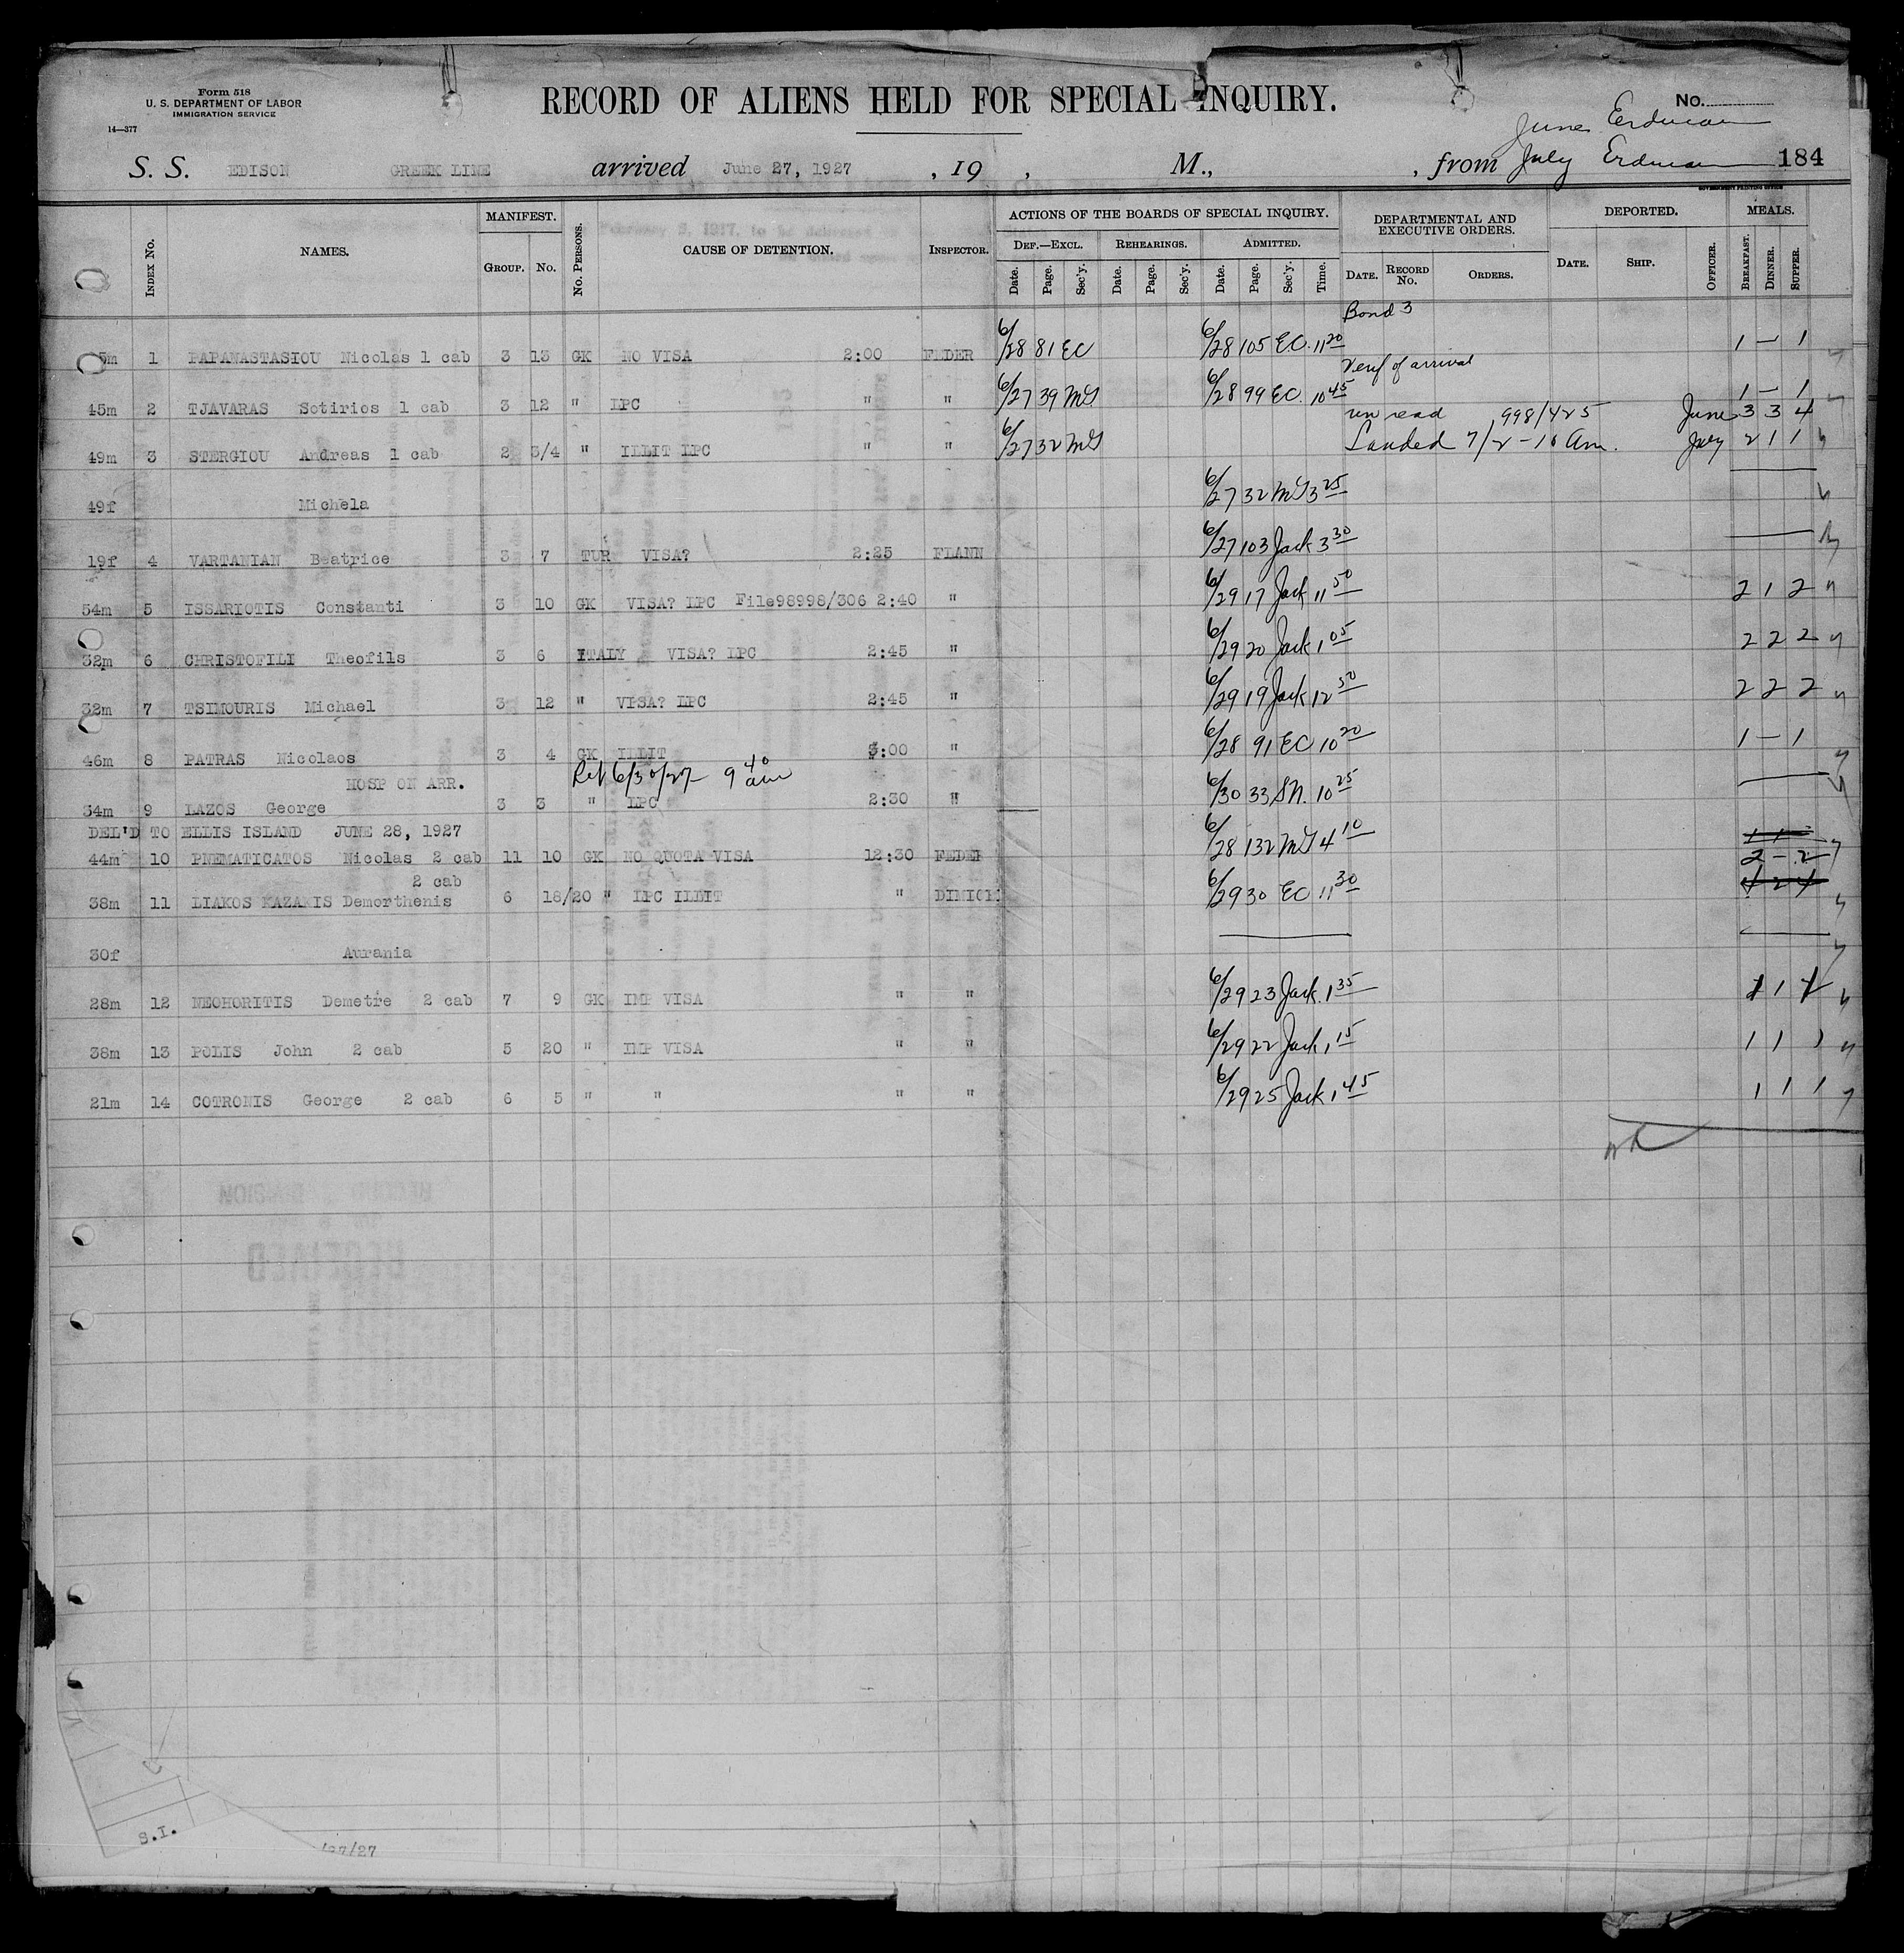 Form 518
U. S. DEPARTMENT OF LABOR
IMMIGRATION SERVICE
14—377
RECORD OF ALIENS HELD FOR SPECIAL INQUIRY.
No.
June Erdman
S. S. EDISON GREEK LINE arrived June 27, 1927 , 19 , M., , from July Erdman 184
GOVERNMENT PRINTING OFFICE
INDEX NO. NAMES. MANIFEST. GROUP. NO. NO. PERSONS. CAUSE OF DETENTION. INSPECTOR. ACTIONS OF THE BOARDS OF SPECIAL INQUIRY. DEPARTMENTAL AND EXECUTIVE ORDERS. DEPORTED. MEALS.
DEF.—EXCL. REHEARINGS. ADMITTED.
Date. Page. Sec'y. Date. Page. Sec'y. Date. Page. Sec'y. Time. DATE. RECORD NO. ORDERS. DATE. SHIP. OFFICER. BREAKFAST. DINNER. SUPPER.
Bond 3
5m 1 PAPANASTASIOU Nicolas 1 cab 3 13 GK NO VISA 2:00 FEDER 6/28 81 EC 6/28 105 EC. 11 20 1 — 1
Verif of arrival
45m 2 TJAVARAS Sotirios 1 cab 3 12 " LPC " " 6/27 39 MG 6/28 99 EC. 10 45 1 — 1
998/425 June 3 3 4
49m 3 STERGIOU Andreas 1 cab 2 3/4 " ILLIT LPC " " 6/27 32 MG Landed 7/2 - 10 am. July 2 1 1
49f Michela 6/27 32 MG 3 25
19f 4 VARTANIAN Beatrice 3 7 TUR VISA? 2:25 FLANN 6/27 103 Jack 3 30
54m 5 ISSARIOTIS Constanti 3 10 GK VISA? LPC File98998/306 2:40 " 6/29 17 Jack 11 50 2 1 2
32m 6 CHRISTOFILI Theofils 3 6 ITALY VISA? LPC 2:45 " 6/29 20 Jack 1 05 2 2 2
32m 7 TSIMOURIS Michael 3 12 " VISA? LPC 2:45 " 6/29 19 Jack 12 50 2 2 2
46m 8 PATRAS Nicolaos 3 4 GK ILLIT 3:00 " 6/28 91 EC 10 20 1 — 1
HOSP ON ARR. Rel 6/30/27 9 40 am
34m 9 LAZOS George 3 3 " LPC 2:30 " 6/30 33 SN. 10 25
DEL'D TO ELLIS ISLAND JUNE 28, 1927
44m 10 PNEMATICATOS Nicolas 2 cab 11 10 GK NO QUOTA VISA 12:30 FEDER 6/28 132 MG 4 10 2 - 2
2 cab
38m 11 LIAKOS KAZANIS Demorthenis 6 18/20 " LPC ILLIT " DIMICK 6/29 30 EC 11 30
30f Aurania
28m 12 NEOHORITIS Demetre 2 cab 7 9 GK IMP VISA " " 6/29 23 Jack. 1 35 1 1 1
38m 13 POLIS John 2 cab 5 20 " IMP VISA " " 6/29 22 Jack 1 15 1 1 1
21m 14 COTRONIS George 2 cab 6 5 " " " " 6/29 25 Jack 1 45 1 1 1
RECORD DIVISION
RECEIVED
S.I.
/27/27